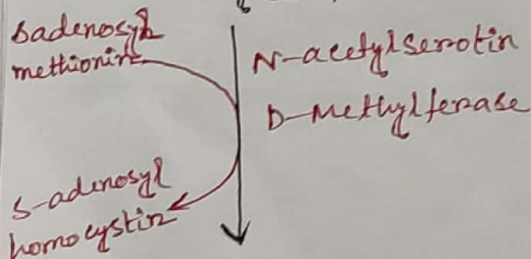 sadenosyl
methionin
N-acetylserotin
D-Methylferase
s-adenosyl
homocystin